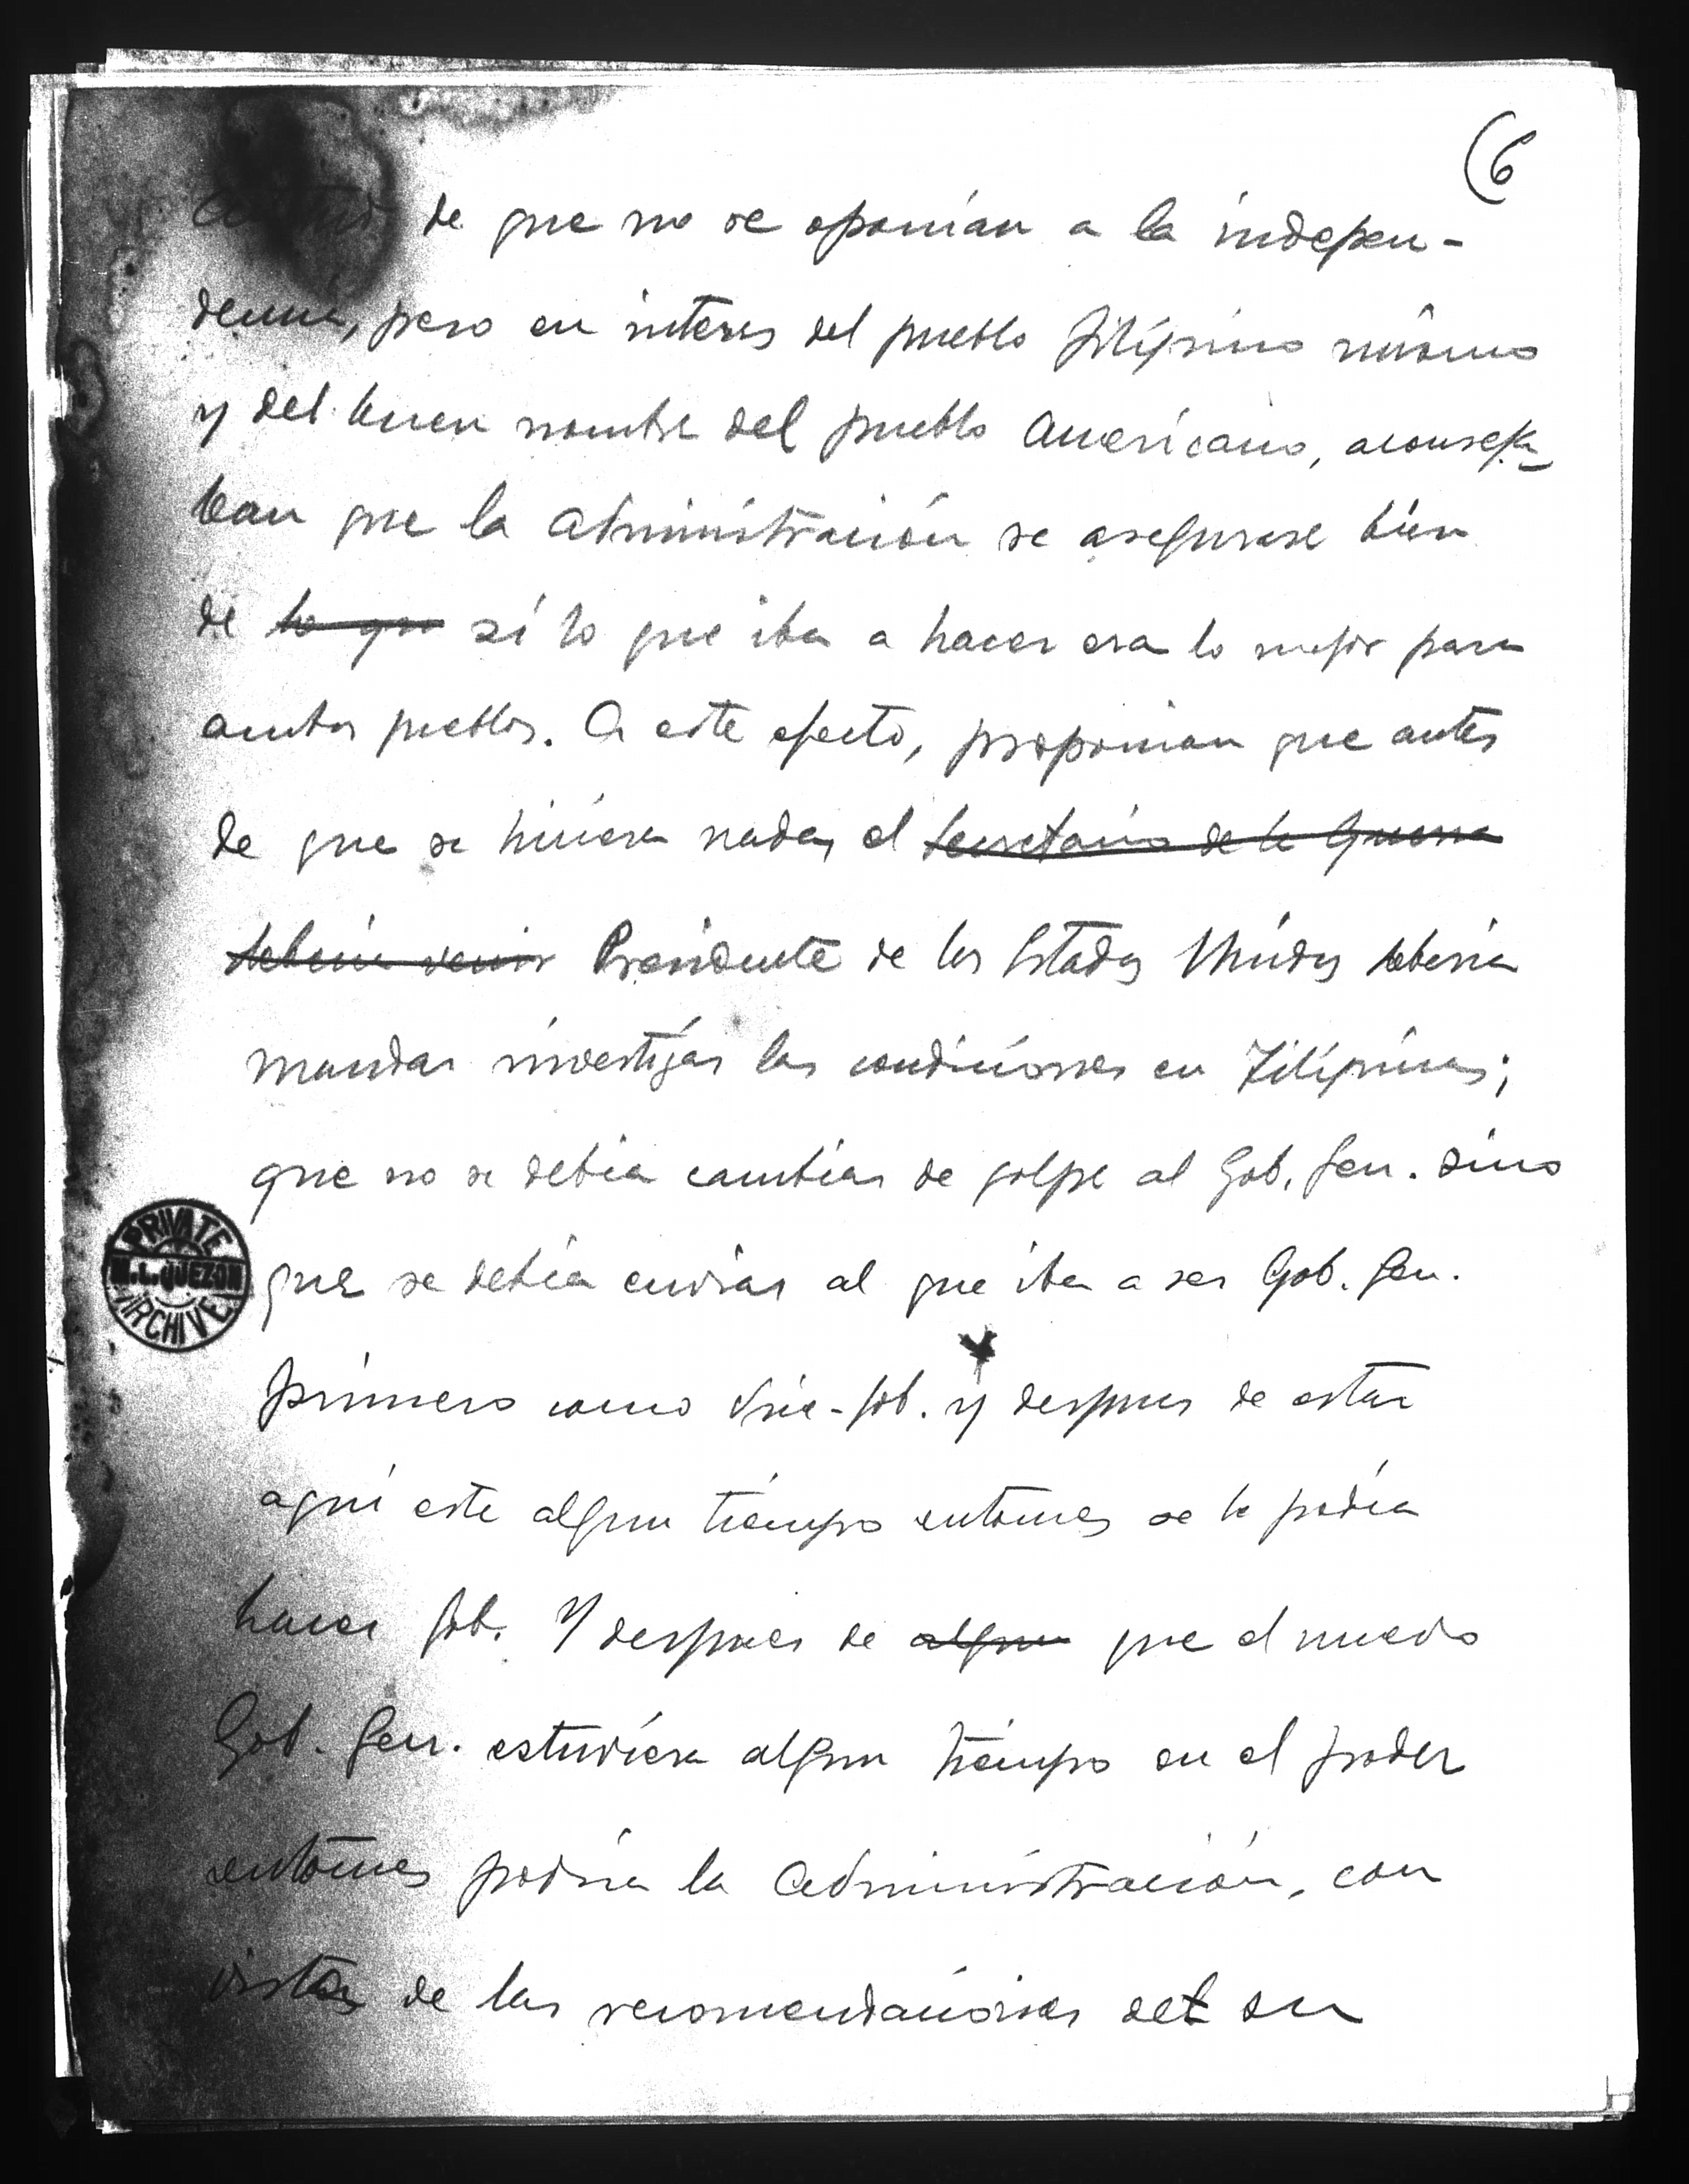 (6
actitud de que no se oponian a la indepen-
dencia, pero en interes del pueblo filipino mismo
y del buen nombre del pueblo Americano, aconseja-
ban que la Administración se asegurase bien
de lo que si lo que iba a hacer era lo mejor para
ambos pueblos. A este efecto, proponian que antes
de que se hiciera nada, el Secretario de la Guerra
deberia venir Presidente de los Estados Unidos deberia
mandar investigar las condiciones en Filipinas;
que no se debia cambiar de golpe al Gob. Gen. sino
que se debia enviar al que iba a ser Gob. Gen.
primero como Vice-Gob. y despues de estar
aqui este algun tiempo entonces se le podia
hacer Gob. Y despues de algun que el nuevo
Gob. Gen. estuviera algun tiempo en el poder
entonces podria la Administración, con
vista de las recomendaciones de su
PRIVATE
M. L. QUEZON
ARCHIVE